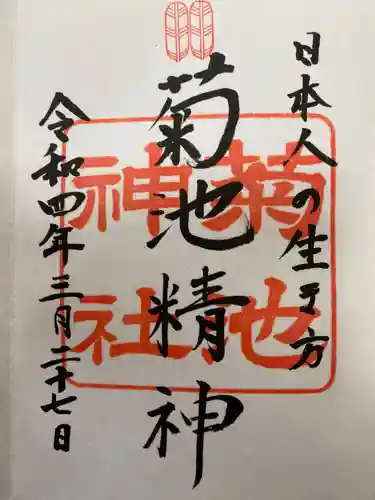 日本人の生き方
菊池精神
令和四年三月二十七日
菊池
神社